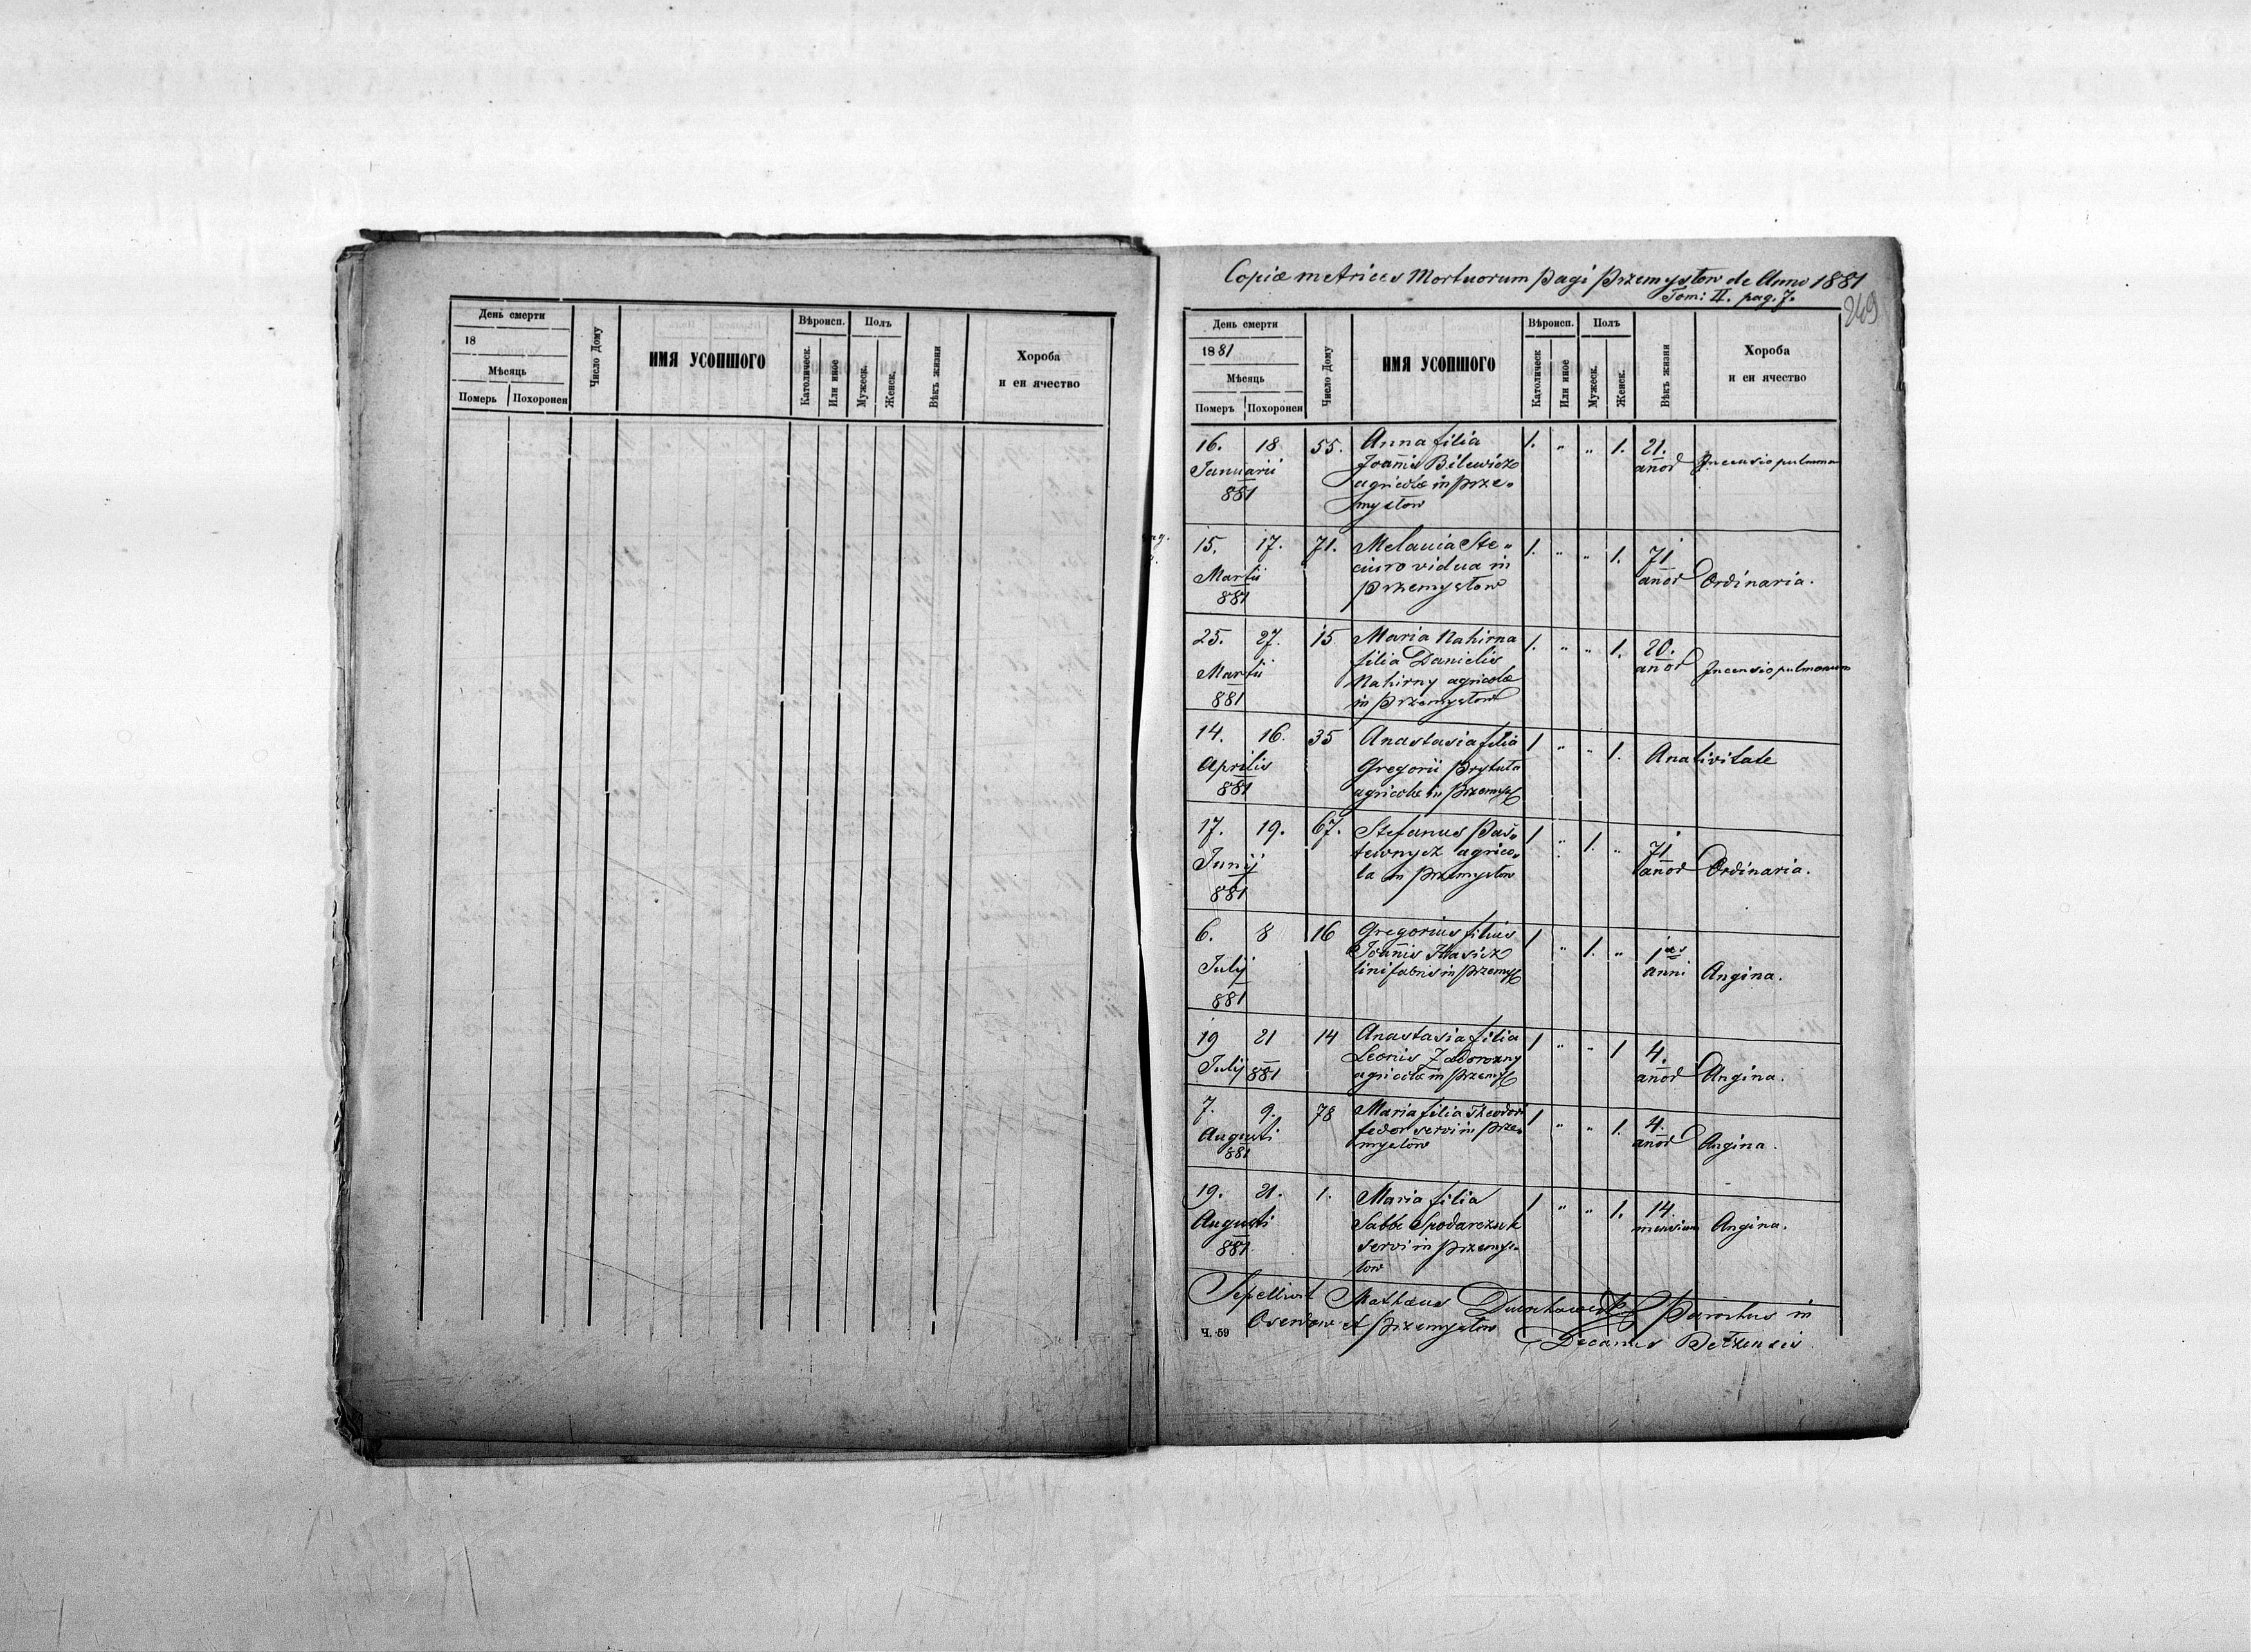 День смерти
18
Мѣсяць
Померъ
Похоронен
Число Дому
ИМЯ УСОПШОГО
Вѣроисп.
Католическ.
Или иное
Полъ
Мужеск.
Женск.
Вѣкъ жизни
Хороба
и еи ячество
Copiæ metrices Mortuorum pagi Przemysłow de Anno 1881
Tom: II. pag. 7.
249
День смерти
1881
Мѣсяць
Померъ
Похоронен
Число Дому
ИМЯ УСОПШОГО
Вѣроисп.
Католическ
Или иное
Полъ
Мужеск.
Женск.
Вѣкъ жизни
Хороба
и еи ячество
16. 18 55. Anna filia 1. " " 1. 21.
Januarii Joannis Bilewicz anor Incensio pulmonum
881 agricolæ in Prze-
mysłow
15. 17. 71. Melania Ste- 1. " " 1. 71
Martii ciuro vidua in anor Ordinaria.
881 Przemysłow
25. 27. 15 Maria Nahirna 1. " " 1. 20.
Martii filia Danielis anor Incensio pulmonum
881 Nahirny agricolæ
in Przemysłow
14. 16. 35 Anastasia filia 1 " " 1. A nativitate
Aprilis Gregorii Prytuła
881 agricolæ in Przemysł
17. 19. 67. Stefanus 1 " 1. " 71
Junij agrico- anor Ordinaria.
881 la in Przemysłow
6. 8 16 Gregorius filius 1 " 1. " 1
Julij Joannis anni Angina.
881 linifabris in Przemysł
19 21 14 Anastasia filia 1 " " 1 4.
Julij 881 Leonis Zadorozny anor Angina.
agricolæ in Przemysł
7. 9. 78 Maria filia Theodori 1 " " 1. 4.
Augusti Fedor servi in Prze- anor Angina.
881 mysłow
19. 21. 1. Maria filia 1 " " 1. 14.
Augusti Sabbe Spodarczuk mensium Angina.
881 servi in Przemys-
łow
Sepellivit Mathæus Parochus in
Oserdow et Przemysłow Decanus Bełzensis.
Ч. 59